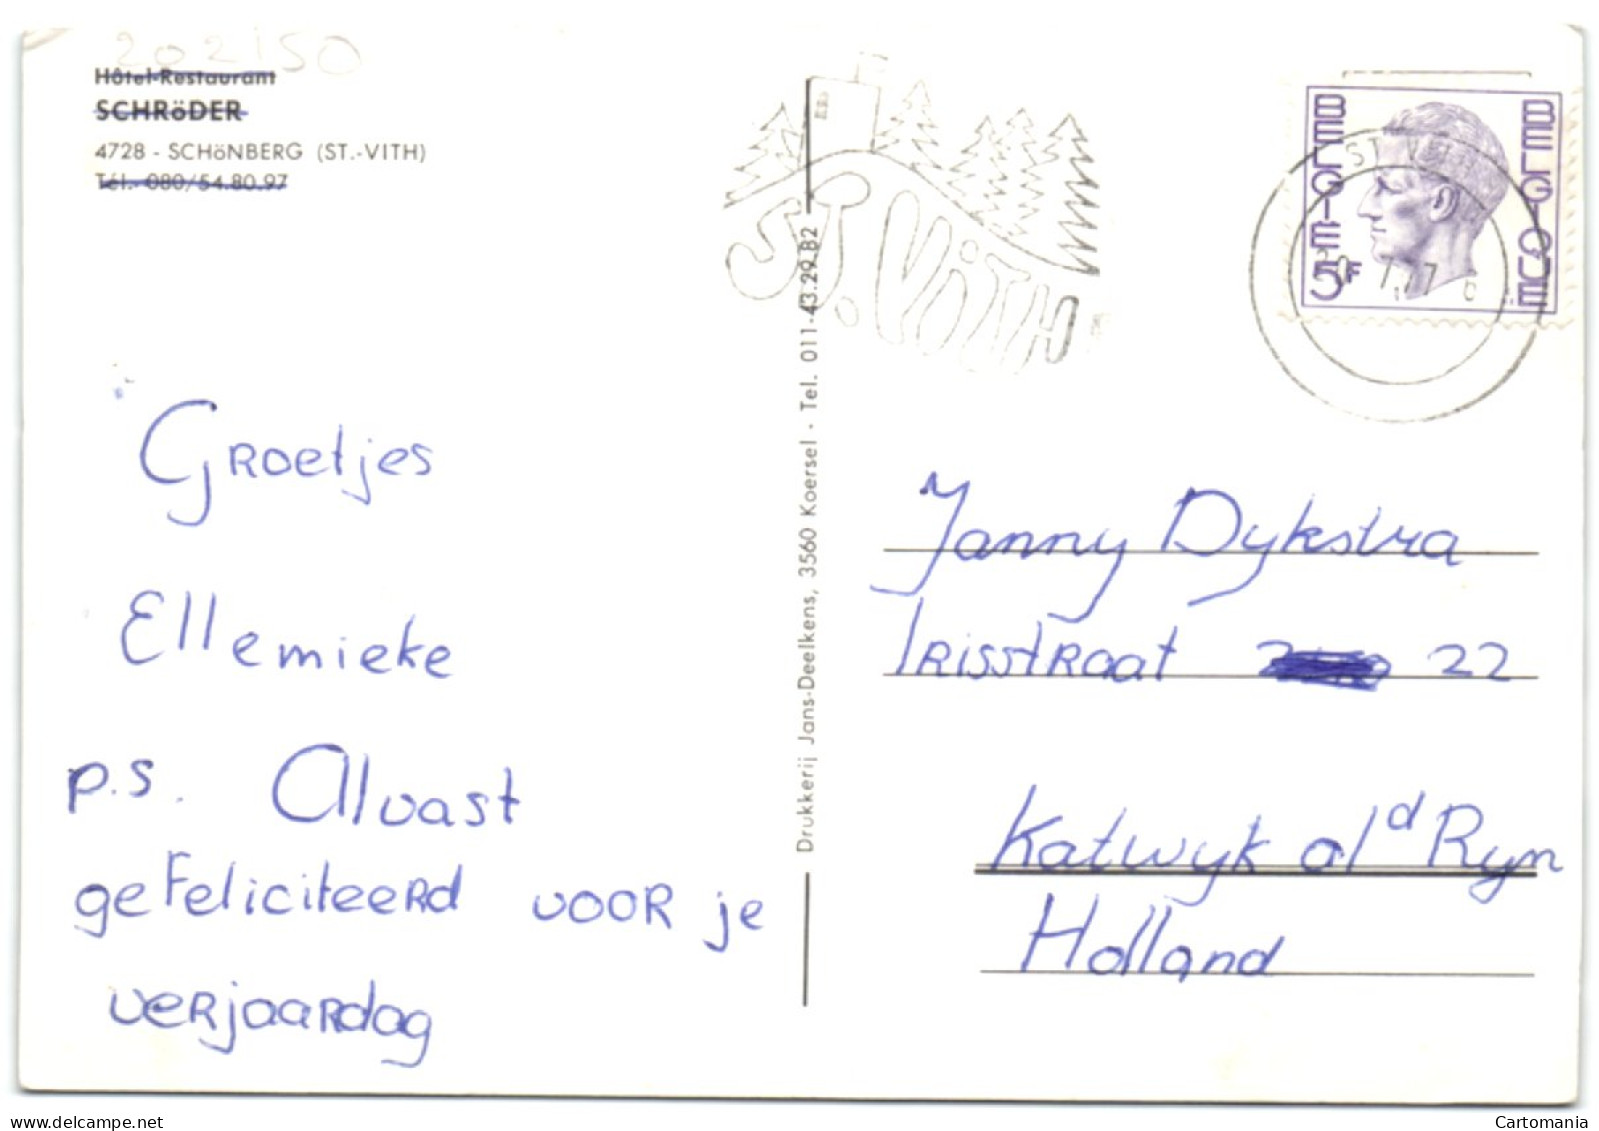 202150
Hôtel-Restaurant
SCHRöDER
4728 - SCHöNBERG (ST.-VITH)
Tél.- 080/54.80.97
ST. VITH
BELGIE
BELGIQUE
5F
ST VITH
Groetjes
Ellemieke
p.s. Alvast
gefeliciteerd voor je
verjaardag
Drukkerij Jans-Deelkens, 3560 Koersel - Tel. 011-43.29.82
Janny Dykstra
Irisstraat 22
Katwyk a/d Ryn
Holland
Cartomania